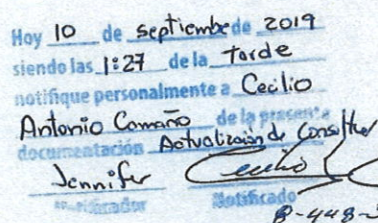 Hoy 10 de septiembre de 2019
siendo las 1:27 de la Tarde
notifique personalmente a Cecilio
Antonio Camaño de la presente
documentación Actualización de Consultor
Jennifer Cecilio
Notificador Notificado
8-448-